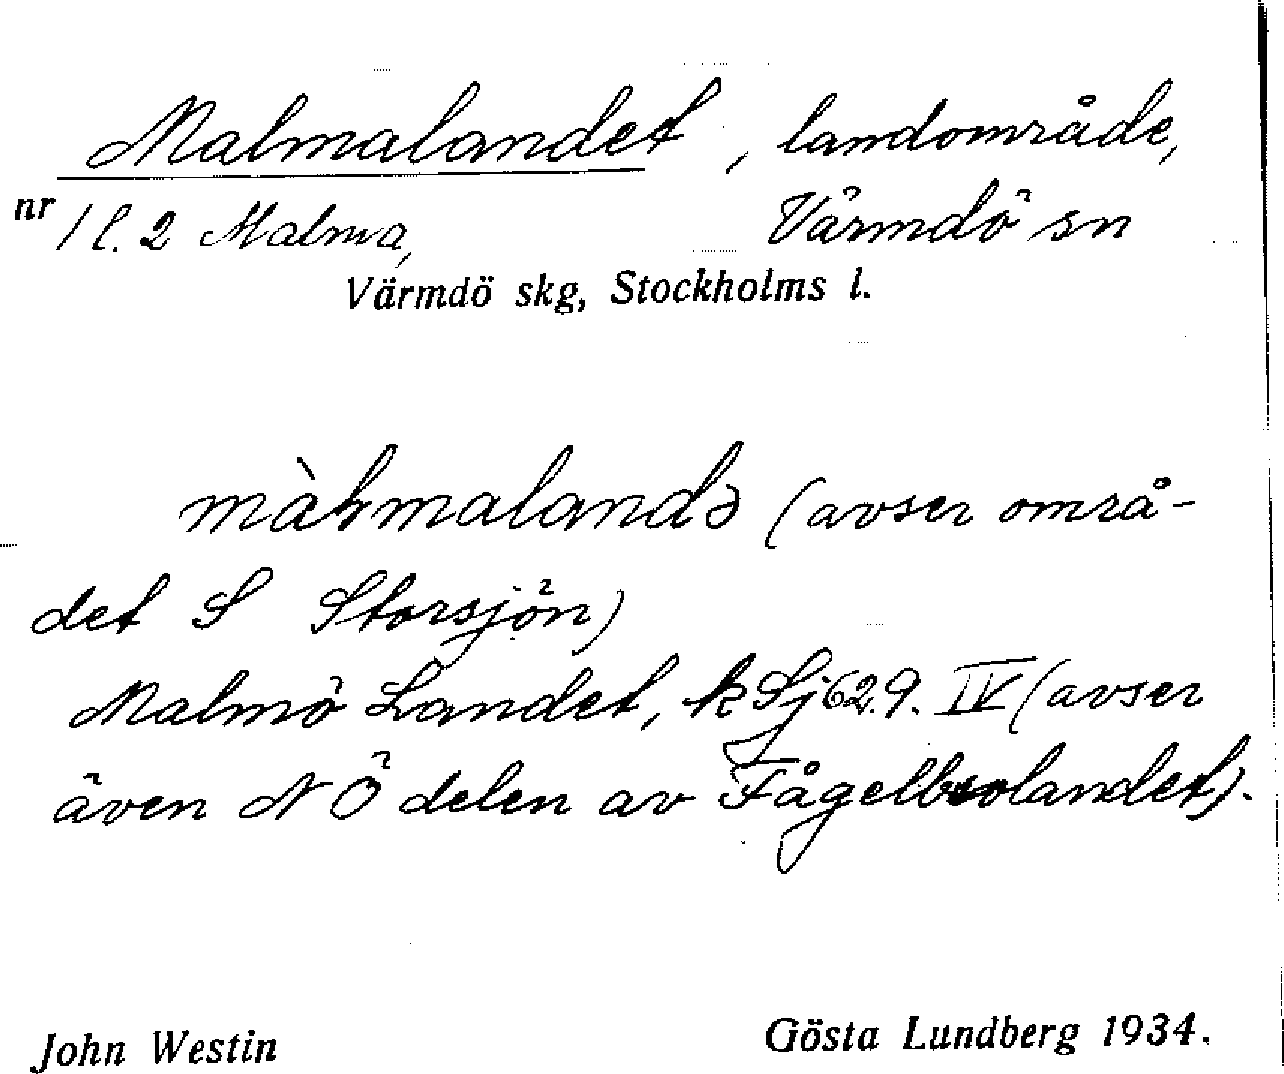 Malmalandet, landområde,
nr 1 l. 2 Malma, Värmdö sn
Värmdö skg, Stockholms l.
màḷmalandə (avser områ-
det S Storsjön)
Malmö Landet, k Sj 62.9. IV (avser
även NÖ delen av Fågelbrolandet).
John Westin Gösta Lundberg 1934.